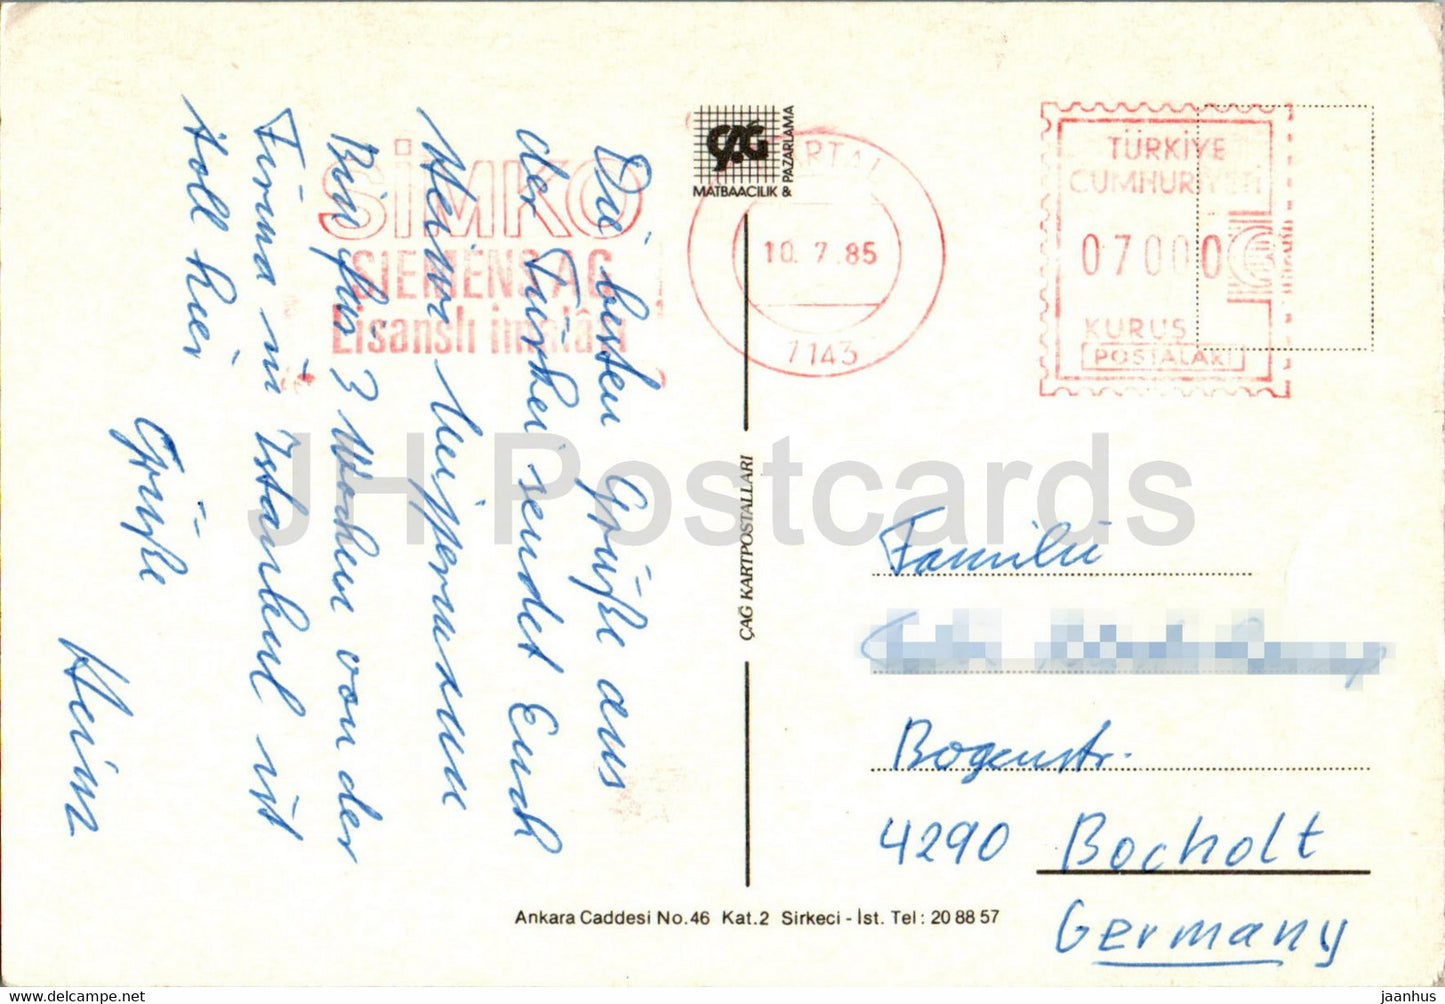 Die besten Grüße aus
der Türkei sendet Euch
Heinz
Bin für 3 Wochen von der
Firma in Istanbul ist
toll hier
Grüße
Heinz
SİMKO
SIEMENS AG
Lisanslı imalâtı
ÇAĞ
MATBAACILIK &
PAZARLAMA
KARTAL
10.7.85
7143
TÜRKİYE
CUMHURİYETİ
07000
KURUŞ
POSTALARI
ÇAĞ KARTPOSTALLARI
JH Postcards
Familie
Bogenstr.
4290 Bocholt
Germany
Ankara Caddesi No.46 Kat.2 Sirkeci - İst. Tel : 20 88 57
www.delcampe.net
jaanhus